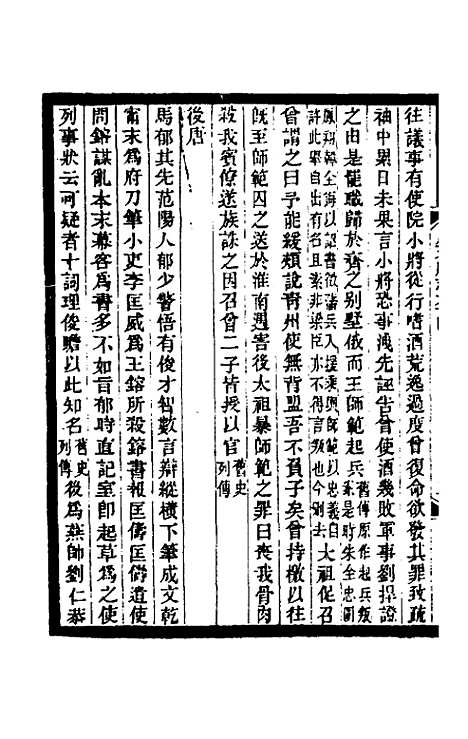 往議事有使院小將從行嗜酒荒逸過度曾復命欲發其罪致疏
袖中累日未果言小將恐事洩先誣告曾使酒幾敗軍事劉捍證
之由是罷職歸於齊之别墅俄而王師範起兵舊傳原作起兵叛案是時朱全忠圍
鳳翔韓全誨等以詔書徵藩兵入援師範以忠義自許此舉自出有名且素非梁臣亦不得言叛也今刪去太祖促召
曾謂之曰子能緩頰說青州使無背盟吾不負子矣曾持檄以往
旣至師範囚之送於淮南遇害後太祖暴師範之罪曰喪我骨肉
殺我賓僚遂族誅之因召曾二子皆授以官舊史列傳
後唐
馬郁其先范陽人郁少警悟有俊才智數言辯縱橫下筆成文乾
甯末爲府刀筆小吏李匡威爲王鎔所殺鎔書報匡儔匡儔遣使
問鎔謀亂本末幕客爲書多不如㫖郁時直記室卽起草爲之使
列事狀云可疑者十詞理俊贍以此知名舊史列傳後爲燕師劉仁恭